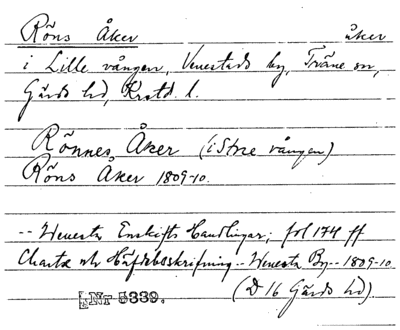 Röns Åker åker
i Lille vången, Venestads by, Träne sn,
Gärds hd, Krstd. l.
Rönnes Åker (i Stre vången)
Röns Åker 1809-10.
-- Wenesta Enskifts Handlingar; fol 174 ff
Charta och Häfdebeskrifning -- Wenesta By -- 1809-10.
(D 16 Gärds hd).
LNT 5339.